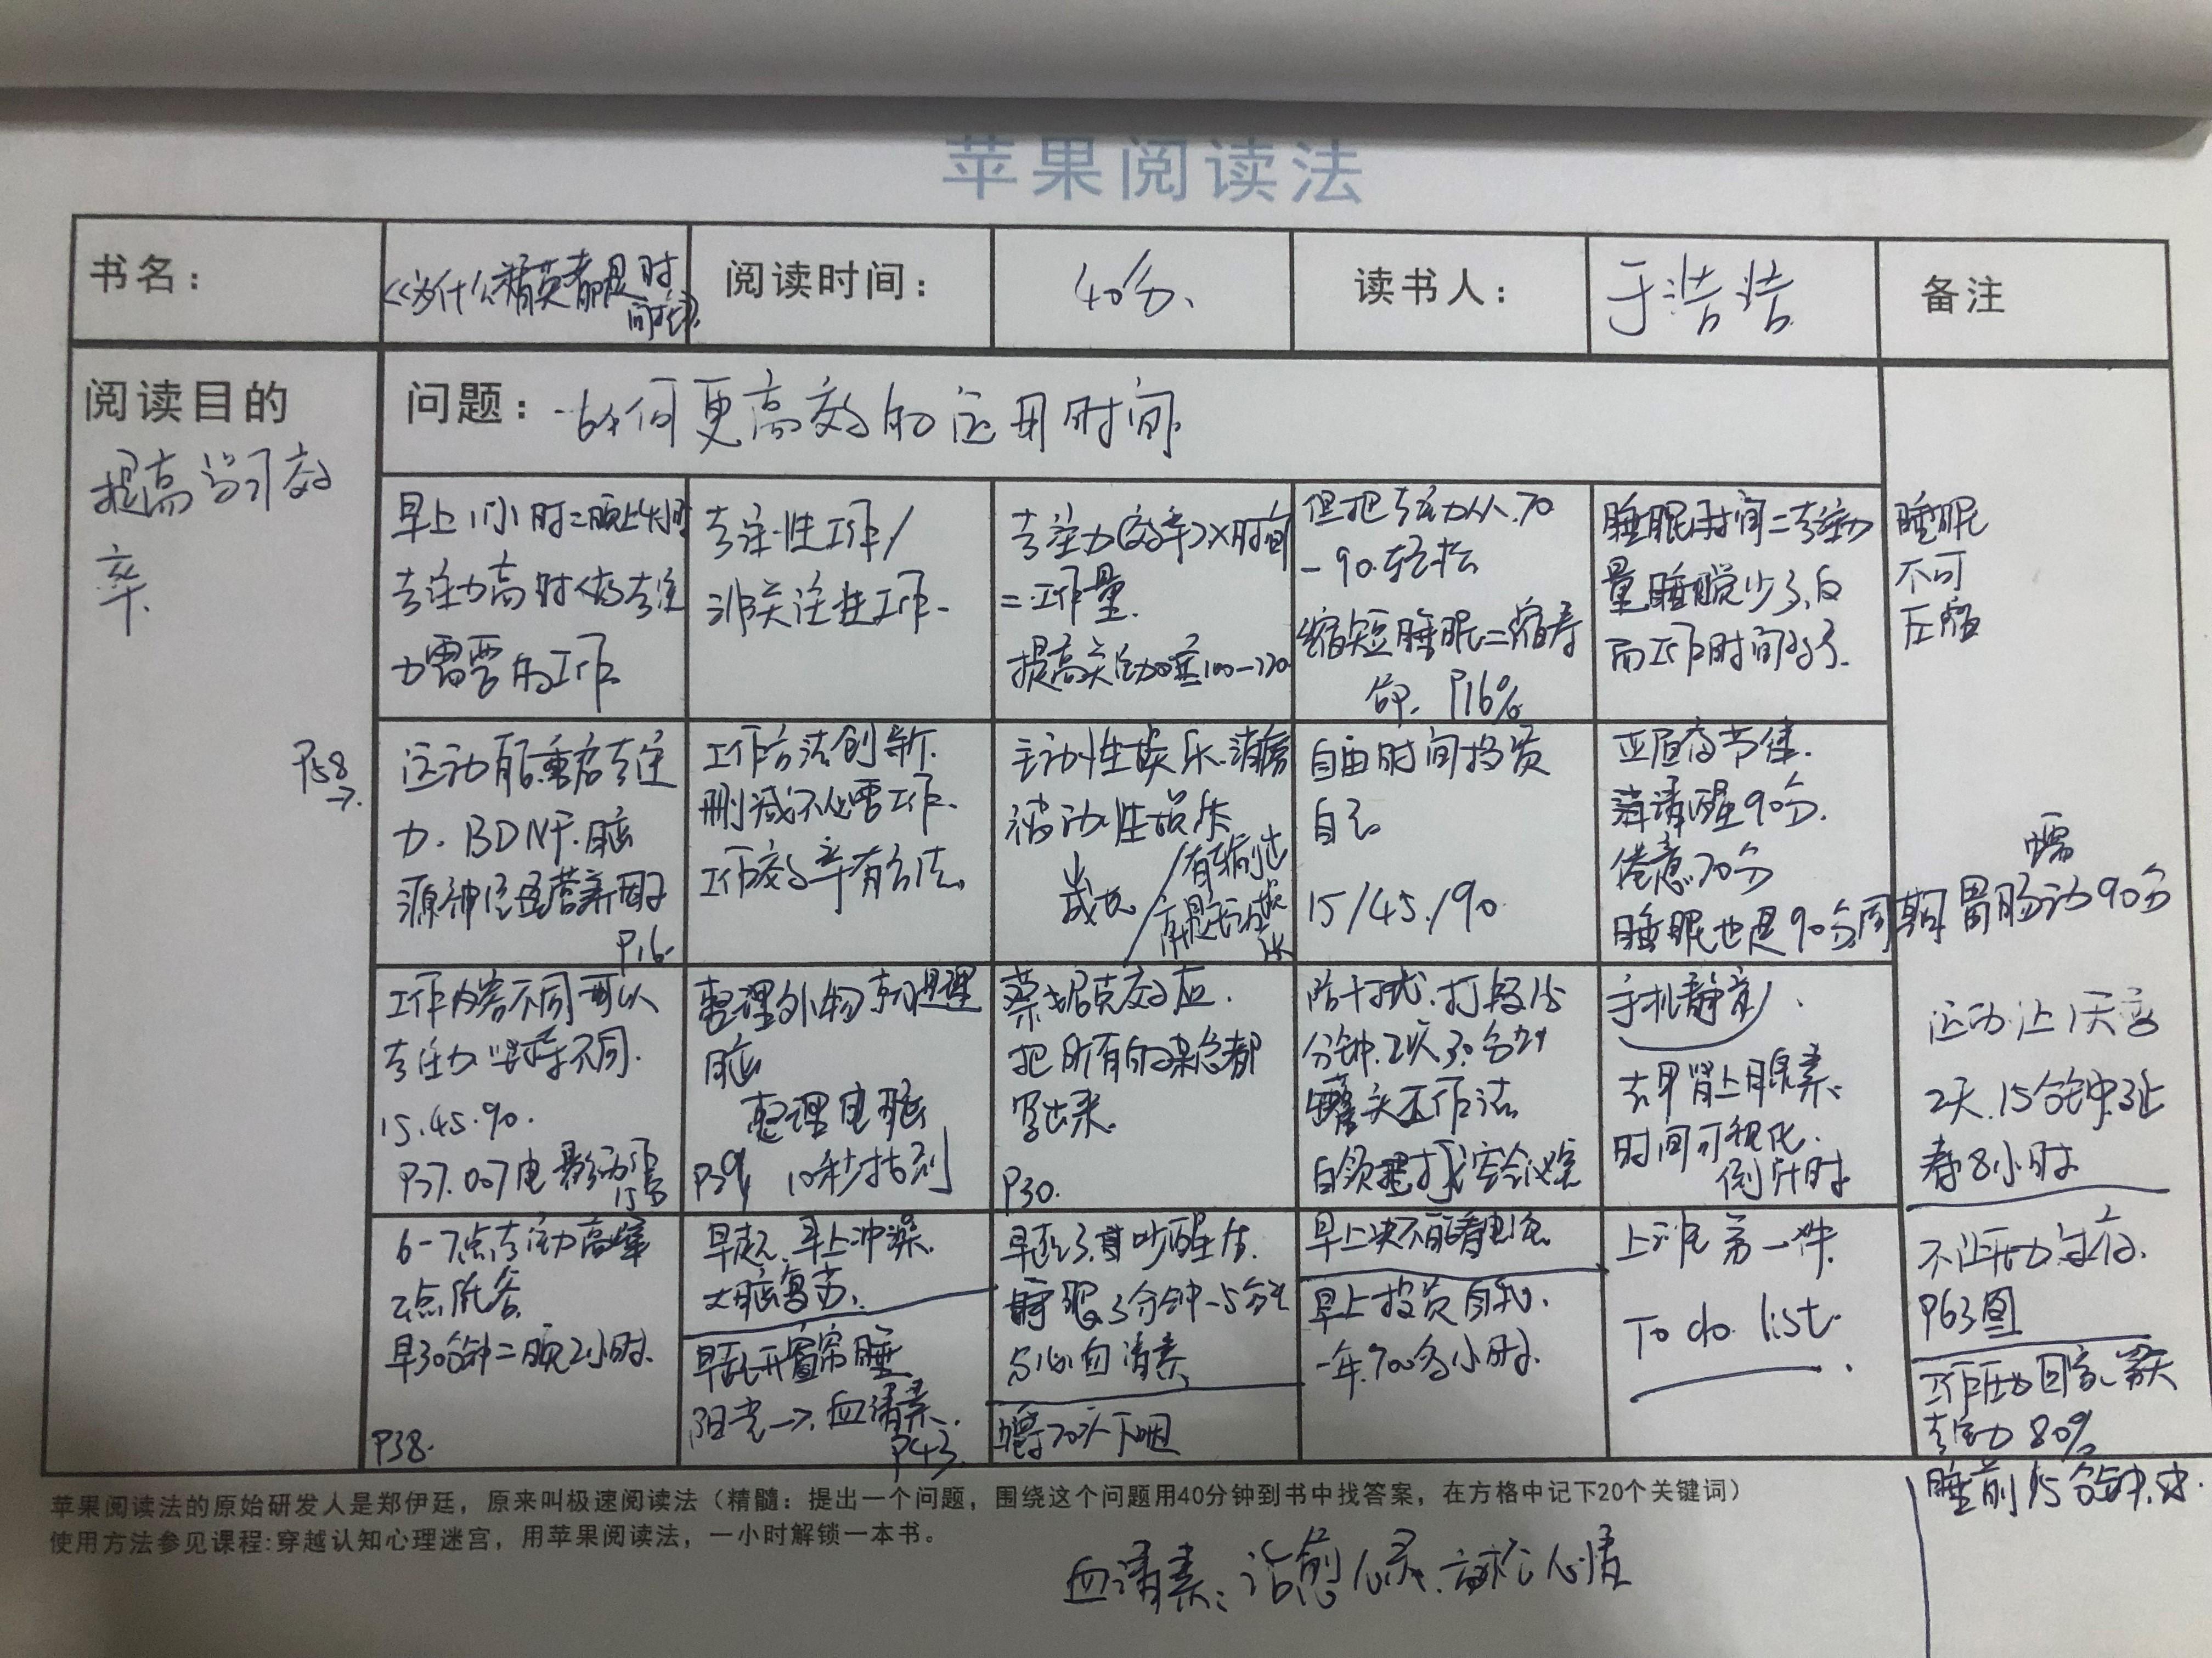 苹果阅读法
书名：
《为什么精英都是时
间控》
阅读时间：
40分、
读书人：
于浩浩
备注
阅读目的
提高学习效
率.
问题：如何更高效的运用时间
早上1小时=晚上4小时
专注力高时做专注
力需要的工作
专注性工作/
非关注性工作
专注力(效率)×时间
=工作量.
提高专注力
但把专注力从70
-90.轻松
缩短睡眠=缩寿
命. P16%
睡眠时间=专注力
量,睡眠少了,反
而工作时间多了.
睡眠
不可
压缩
P58
→.
运动能重启专注
力. BDNF.脑
源神经营养因子
P16
工作方法创新.
删减不必要工作.
工作效率有方法.
主动性娱乐.消磨
被动性娱乐
成长
自由时间投资
自己
15/45/90
亚后夜节律.
清醒90分.
倦意20分
睡眠也是90分周期
胃肠动90分
工作内容不同可以
专注力时长不同.
15.45.90.
P37.007电影
整理外物就是整理
脑
整理电脑
P39 10秒找到
蔡格尼克效应.
把所有的杂念都
写出来.
P30.
防干扰.打段15
分钟.2次30分钟
罐头工作法
手机静音
去甲肾上腺素.
时间可视化.
倒计时
运动让1天变
2天.15分钟
寿8小时
6-7点专注力高峰
2点低谷
早30分钟=晚2小时.
P38.
早起.早上冲澡.
大脑复苏.
早起开窗帘睡
阳光→.血清素.
P43.
3分钟-5分钟
血清素
嚼20次下咽
早上决不能看电视
早上投资自我.
一年700多小时.
上班第一件.
To do list.
P63图
专注力80%
睡前15分钟
苹果阅读法的原始研发人是郑伊廷，原来叫极速阅读法（精髓：提出一个问题，围绕这个问题用40分钟到书中找答案，在方格中记下20个关键词）
使用方法参见课程:穿越认知心理迷宫，用苹果阅读法，一小时解锁一本书。
血清素：治愈心灵.放松心情